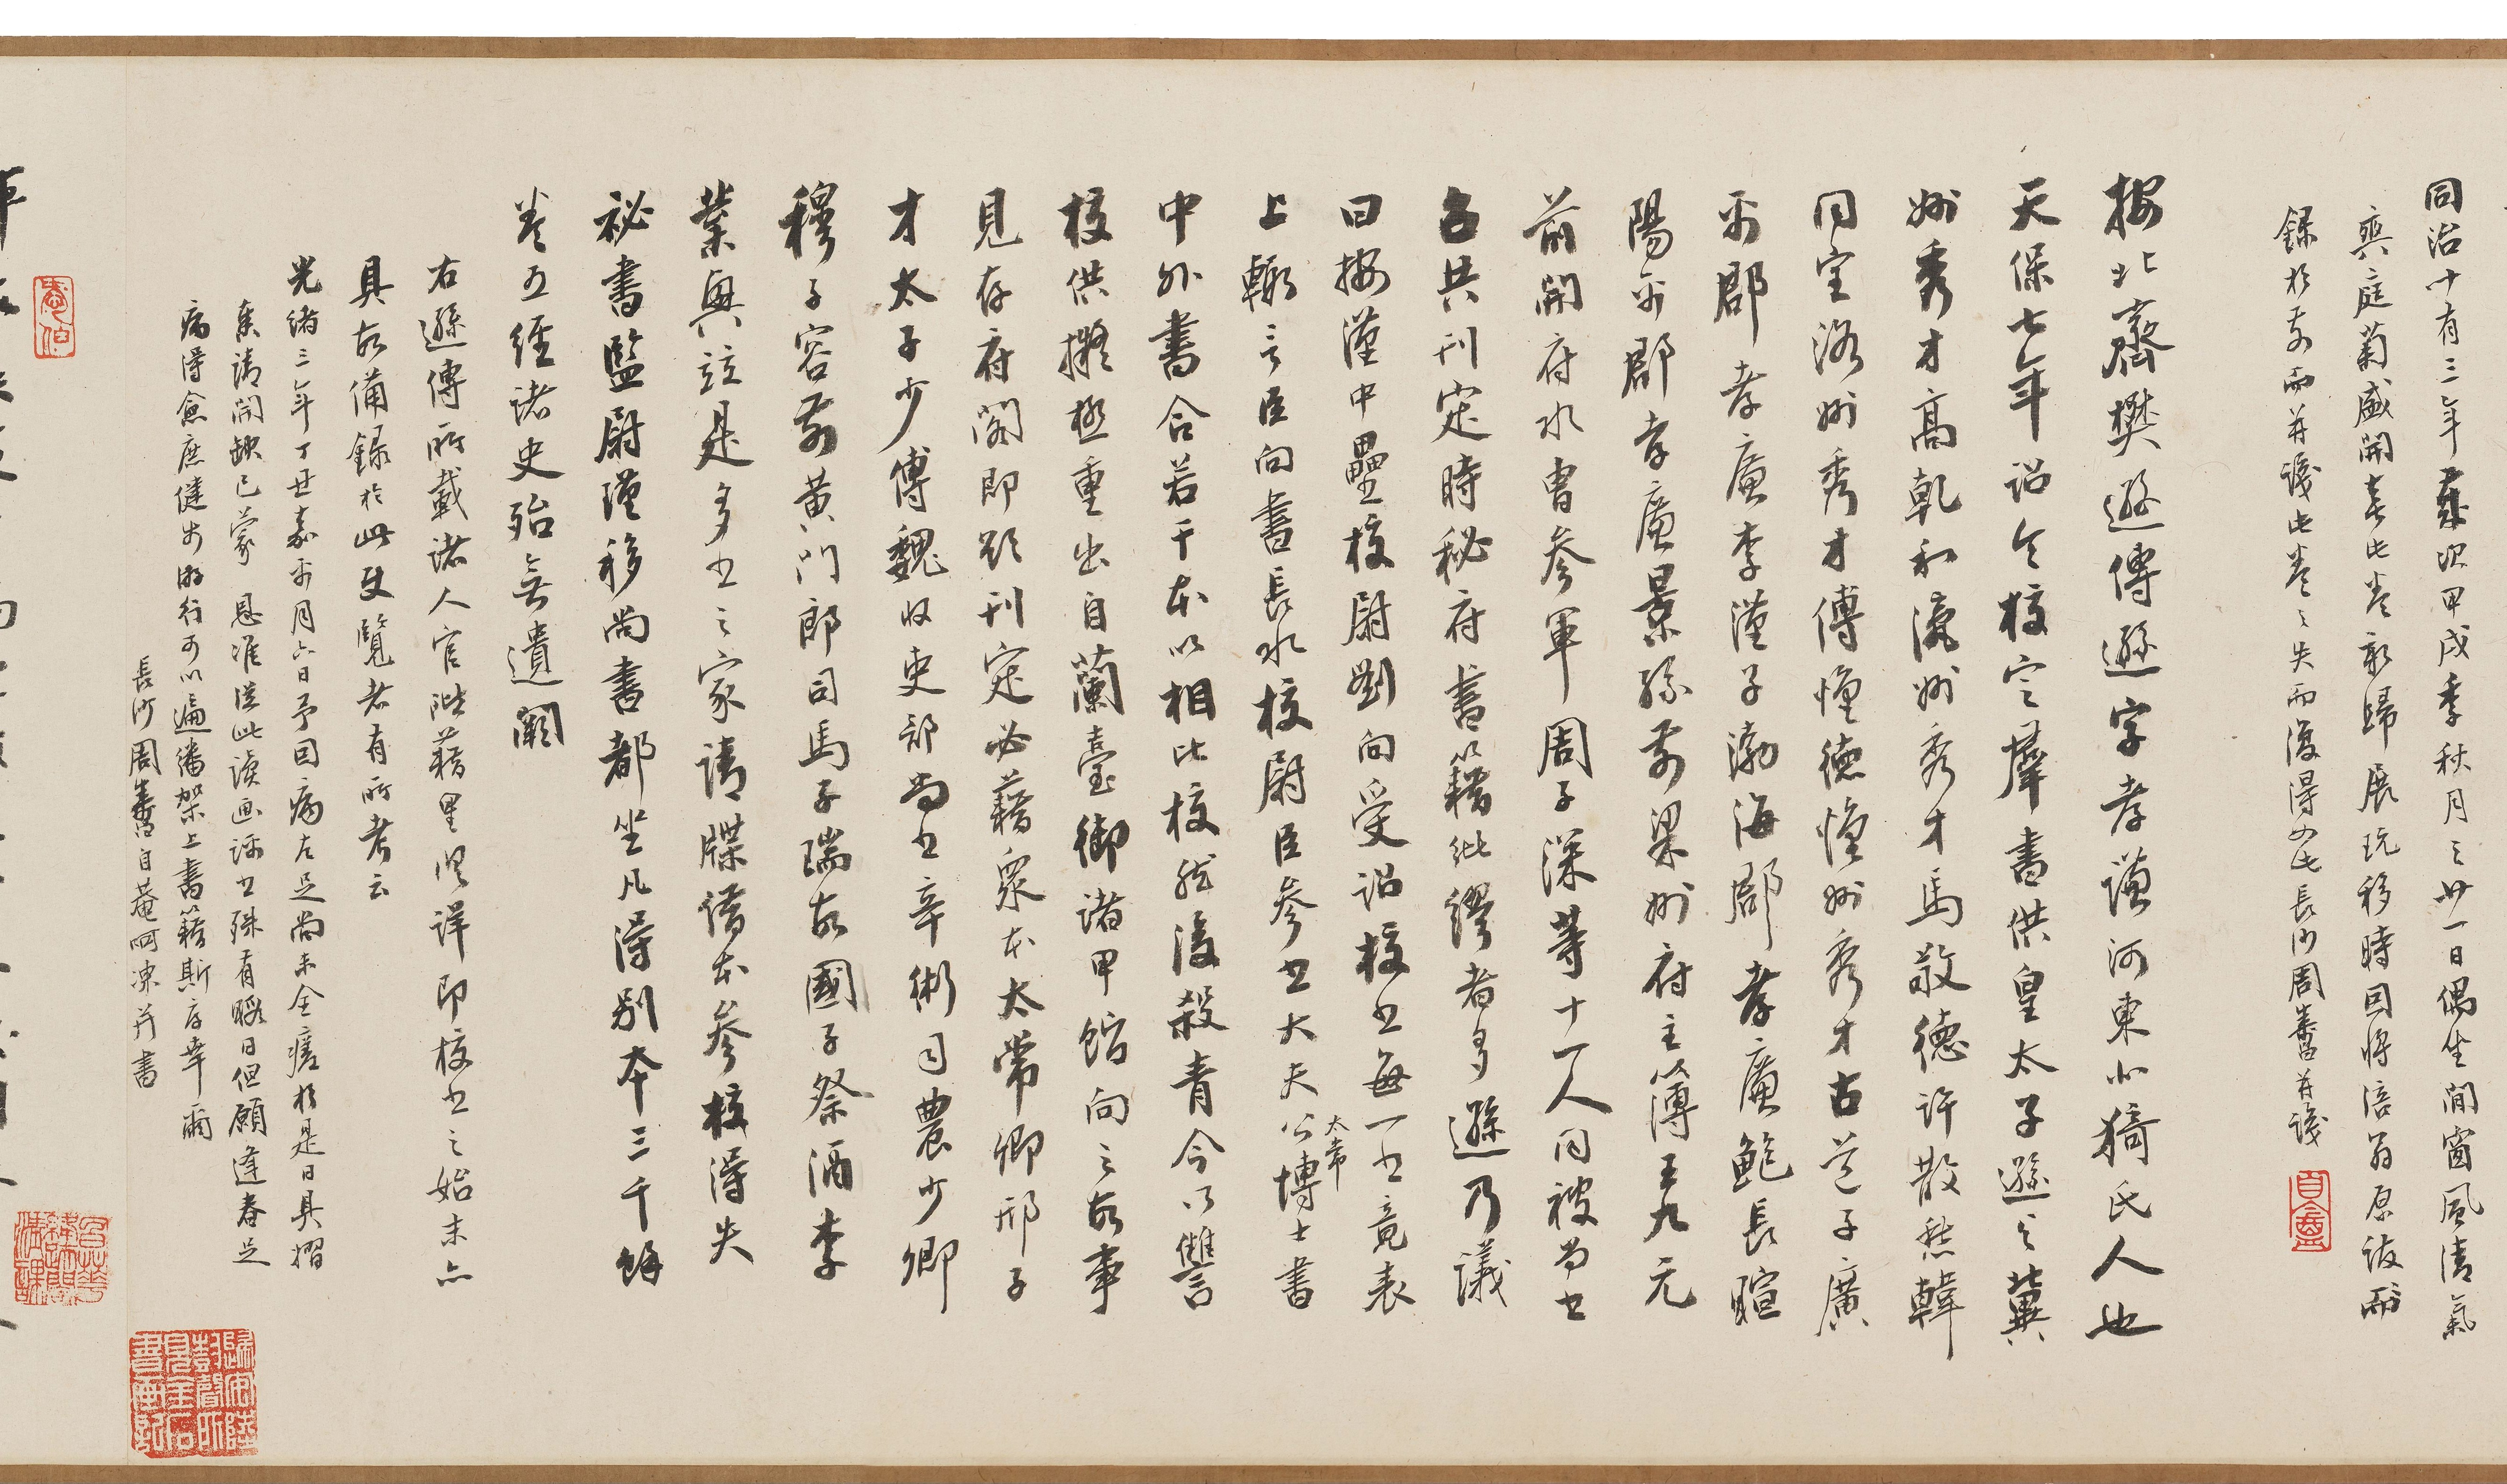 同治十有三年歲次甲戌季秋月之廿一日偶坐閒窗風清氣
爽庭菊盛開喜此卷新歸展玩移時因將涪翁原跋而
錄於前而并識此卷之失而復得如此長沙周壽昌并識
按北齊樊遜傳遜字孝謙河東北猗氏人也
天保七年詔令校定羣書供皇太子遜與冀
州秀才高乾和瀛州秀才馬敬德許散愁韓
同寶洛州秀才傅懷德懷州秀才古道子廣
平郡孝廉李漢子渤海郡孝廉鮑長暄
陽平郡孝廉景孫前梁州府主簿王九元
前開府水曹參軍周子深等十一人同被尚書
召共刊定時秘府書籍紕繆者多遜乃議
曰按漢中壘校尉劉向受詔校書每一書竟表
上輒言臣向書長水校尉臣參書大夫公太常博士書
中外書合若干本以相比校然後殺青今所讎
校供擬極重出自蘭臺御諸甲館向之故事
見存府閣即欲刊定必藉眾本太常卿邢子
才太子少傅魏收吏部尚書辛術司農少卿
穆子容前黃門郎司馬子瑞故國子祭酒李
業興竝是多書之家請牒借本參校得失
祕書監尉瑾移尚書都坐凡得別本三千餘
卷五經諸史殆無遺闕
右遜傳所載諸人官階籍里俱詳即校書之始末亦
具故備錄於此使覽者有所考云
光緒三年丁丑嘉平月六日予因病左足尚未全瘥於是日具摺
奏請開缺已蒙 恩准從此讀畫評書殊有暇日但願逢春足
病得愈庶健步游行可以遍繙架上書籍斯存幸爾
長沙周壽昌自菴呵凍并書